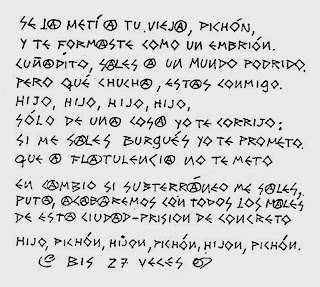 SE LA METÍ A TU VIEJA, PICHÓN,
Y TE FORMASTE COMO UN EMBRIÓN.
CUÑADITO, SALES A UN MUNDO PODRIDO.
PERO QUÉ CHUCHA, ESTAS CONMIGO.
HIJO, HIJO, HIJO, HIJO,
SÓLO DE UNA COSA YO TE CORRIJO:
SI ME SALES BURGUÉS YO TE PROMETO
QUE A FLATULENCIA NO TE METO
EN CAMBIO SI SUBTERRÁNEO ME SALES,
PUTA, ACABAREMOS CON TODOS LOS MALES
DE ESTA CIUDAD-PRISION DE CONCRETO
HIJO, PICHÓN, HIJON, PICHÓN, HIJON, PICHÓN.
BIS 27 VECES